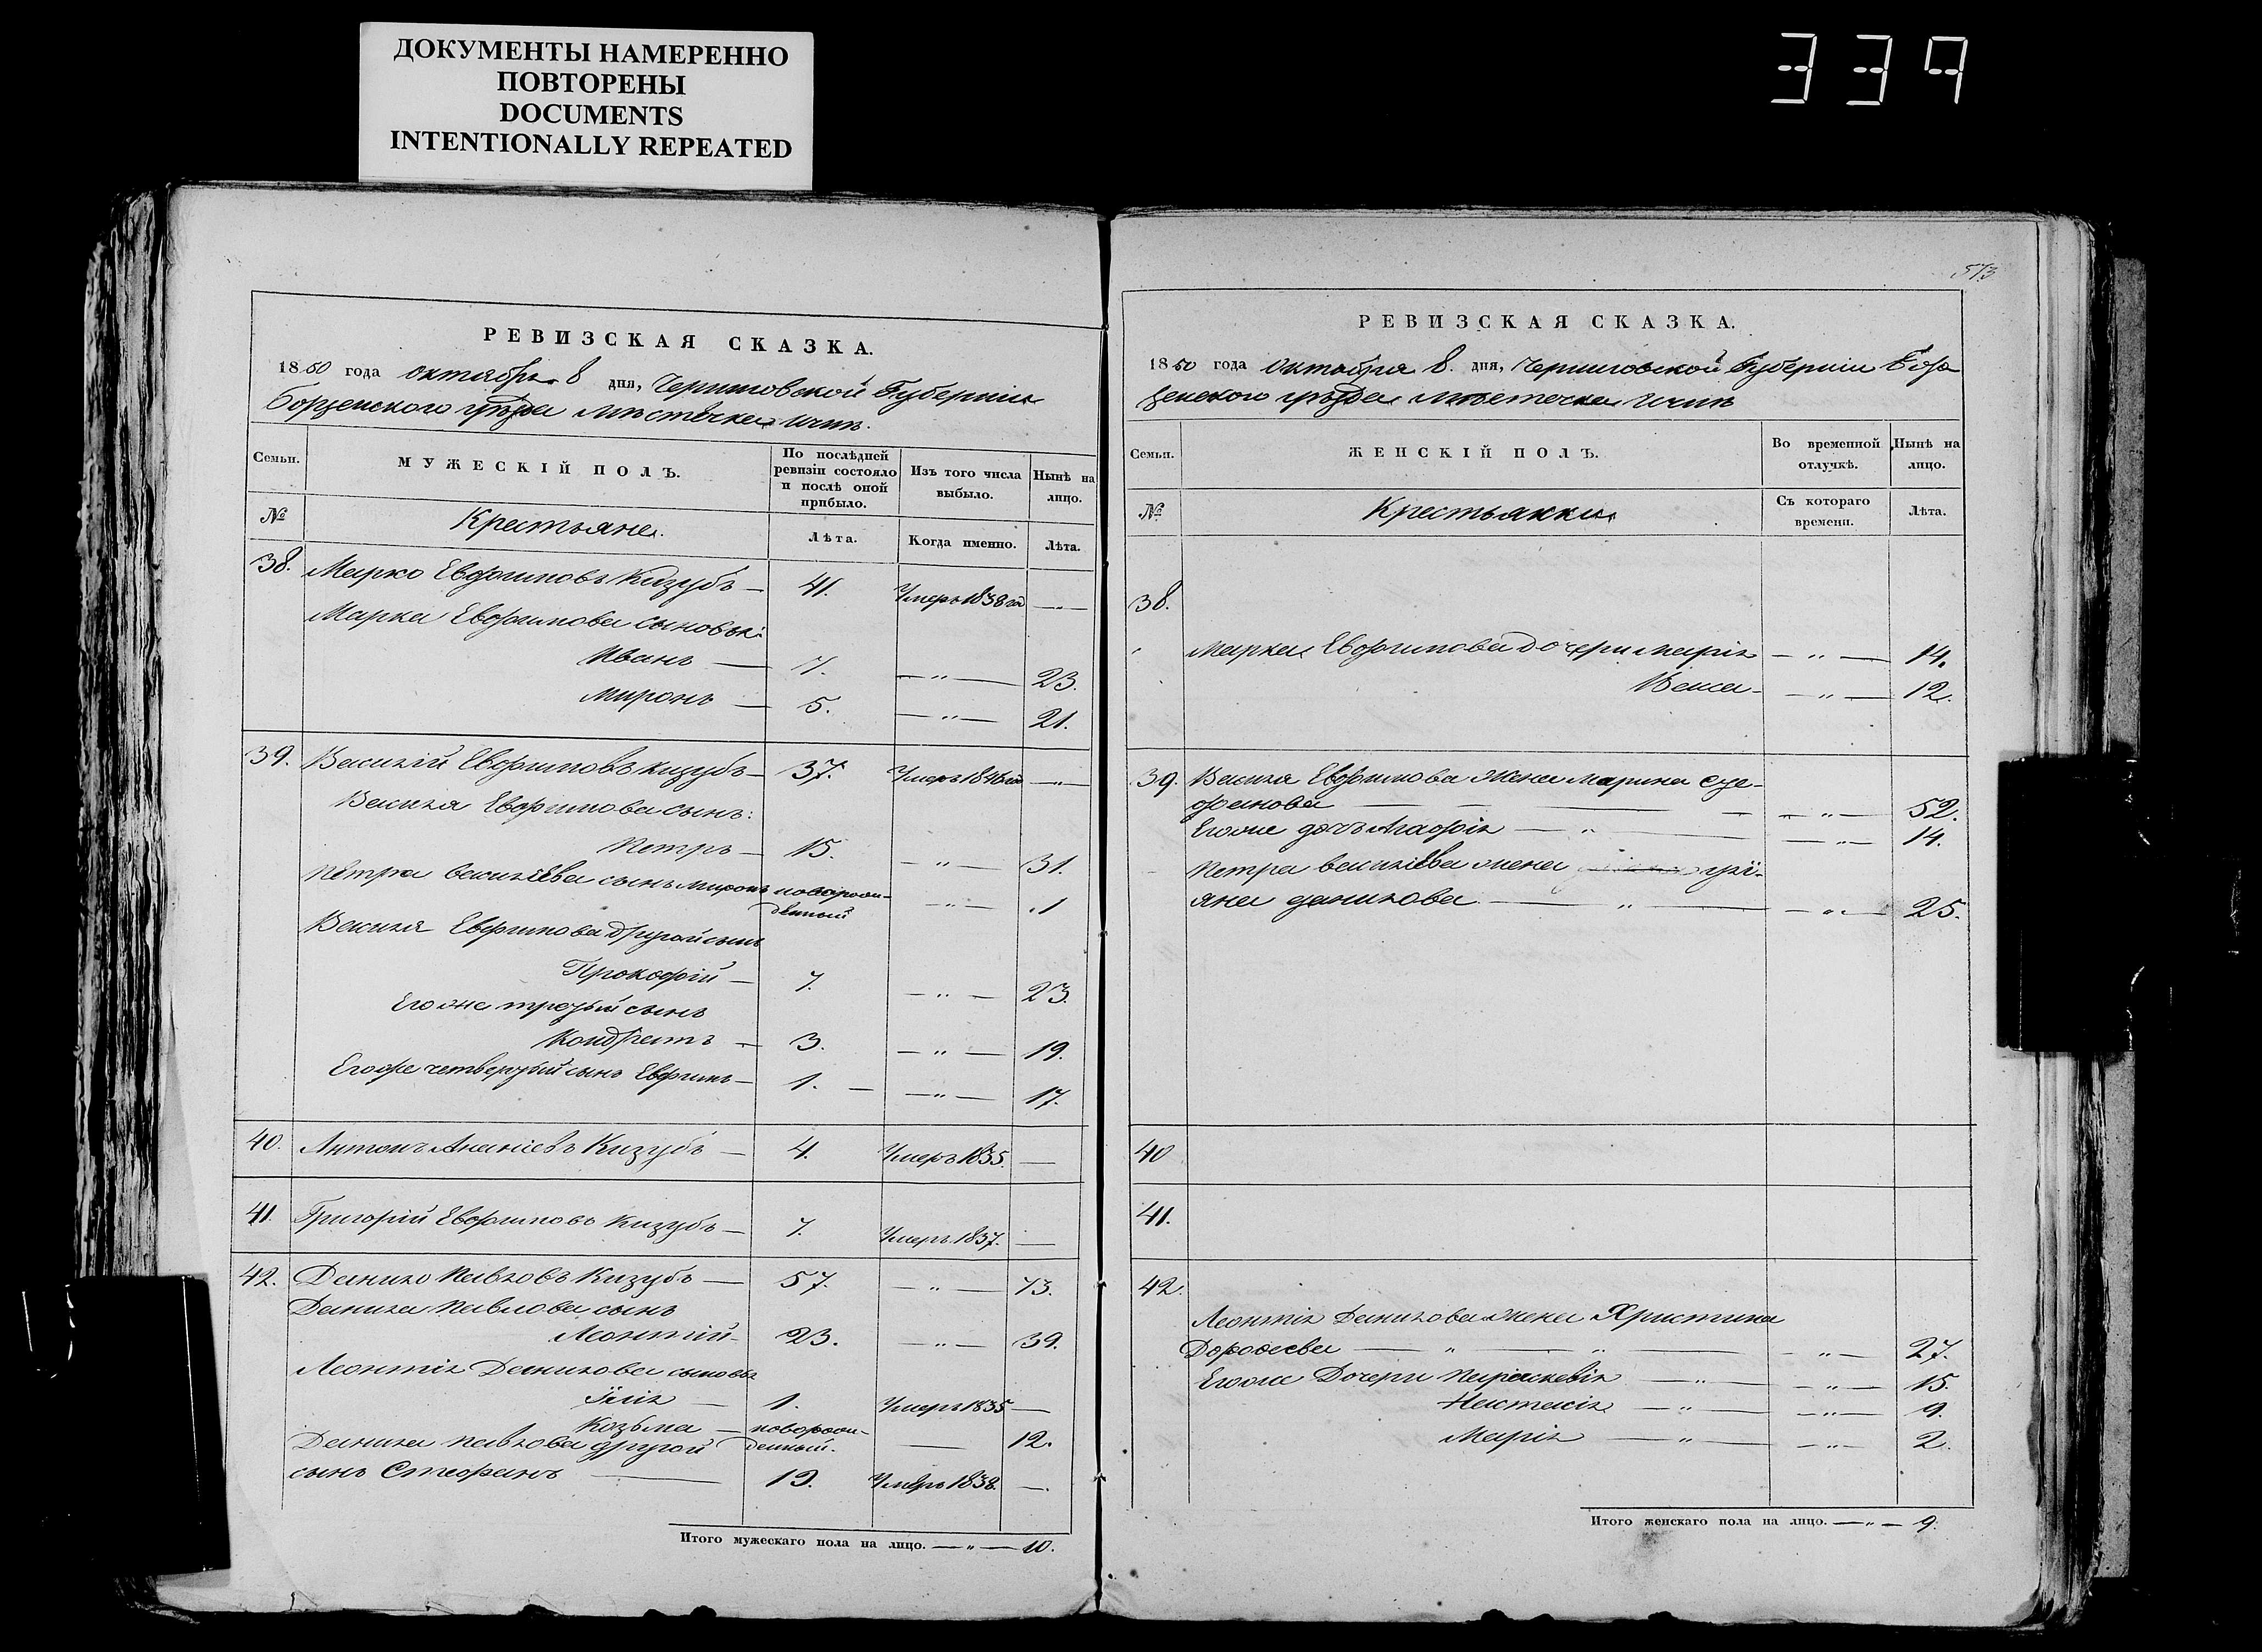 ДОКУМЕНТЫ НАМЕРЕННО
ПОВТОРЕНЫ
DOCUMENTS
INTENTIONALLY REPEATED
339
РЕВИЗСКАЯ СКАЗКА.
1850 года октября 8 дня, Черниговской Губерніи
Борзенского уѣзда мѣстечка Ични.
Семьи.
МУЖЕСКІЙ ПОЛЪ.
По послѣдней ревизіи состояло и послѣ оной прибыло.
Изъ того числа выбыло.
Нынѣ на лицо.
№
Крестьяне.
Лѣта.
Когда именно.
Лѣта.
38. Марко Евфимовъ Кизубъ — 41. Умеръ 1838 год — „ —
Марка Евфимова сыновья:
Иванъ — 7. — „ — 23.
Миронъ — 5. — „ — 21.
39. Василій Евфимовъ Кизубъ — 37. Умеръ 1846 год — „ —
Василя Евфимова сынъ:
Петръ — 15. — „ — 31.
Петра Василіева сынъ Миронъ новорож-
денный — „ — 1
Василя Евфимова другой сынъ
Прокофій — 7. — „ — 23.
Его же третій сынъ
Кондратъ — 3. — „ — 19.
Его же четвертый сынъ Евфимъ — 1. — — „ — 17.
40. Антонъ Ананіевъ Кизубъ — 4. Умеръ 1835. —
41. Григорій Евфимовъ Кизубъ — 7. Умеръ 1837. —
42. Данило Павловъ Кизубъ — 57. — „ — 73.
Данила Павлова сынъ
Леонтій — 23. — „ — 39.
Леонтія Данилова сыновья
Ілія — 1. Умеръ 1835 —
Козьма — новорож-
денный. — 12.
Данила Павлова другой
сынъ Стефанъ — 19. Умеръ 1838. —.
Итого мужескаго пола на лицо. — „ — 10.
573
РЕВИЗСКАЯ СКАЗКА.
1850 года Октября 8. дня, Черниговской Губерніи Бор
зенского уѣзда мѣстечка Ични
Семьи.
ЖЕНСКІЙ ПОЛЪ.
Во временной отлучкѣ.
Нынѣ на лицо.
№
Крестьянки
Съ котораго времени.
Лѣта.
38.
Марка Евфимова дочери Марія — „ — 14.
— „ — 12.
39. Василя Евфимова жена Марина
— — — „ — 52.
Его же дочь Агафія — „ — — „ — 14.
Петра Василіева жена улі-
яна Данилова — „ — — „ — 25.
40
41.
42.
Леонтія Данилова жена Христина
Дорофеева — „ — „ — — „ — 27.
Его же Дочери Параскевія — „ — — „ — 15.
Настасія — „ — — „ — 9.
Марія — „ — — „ — 2.
Итого женскаго пола на лицо. — „ — 9.